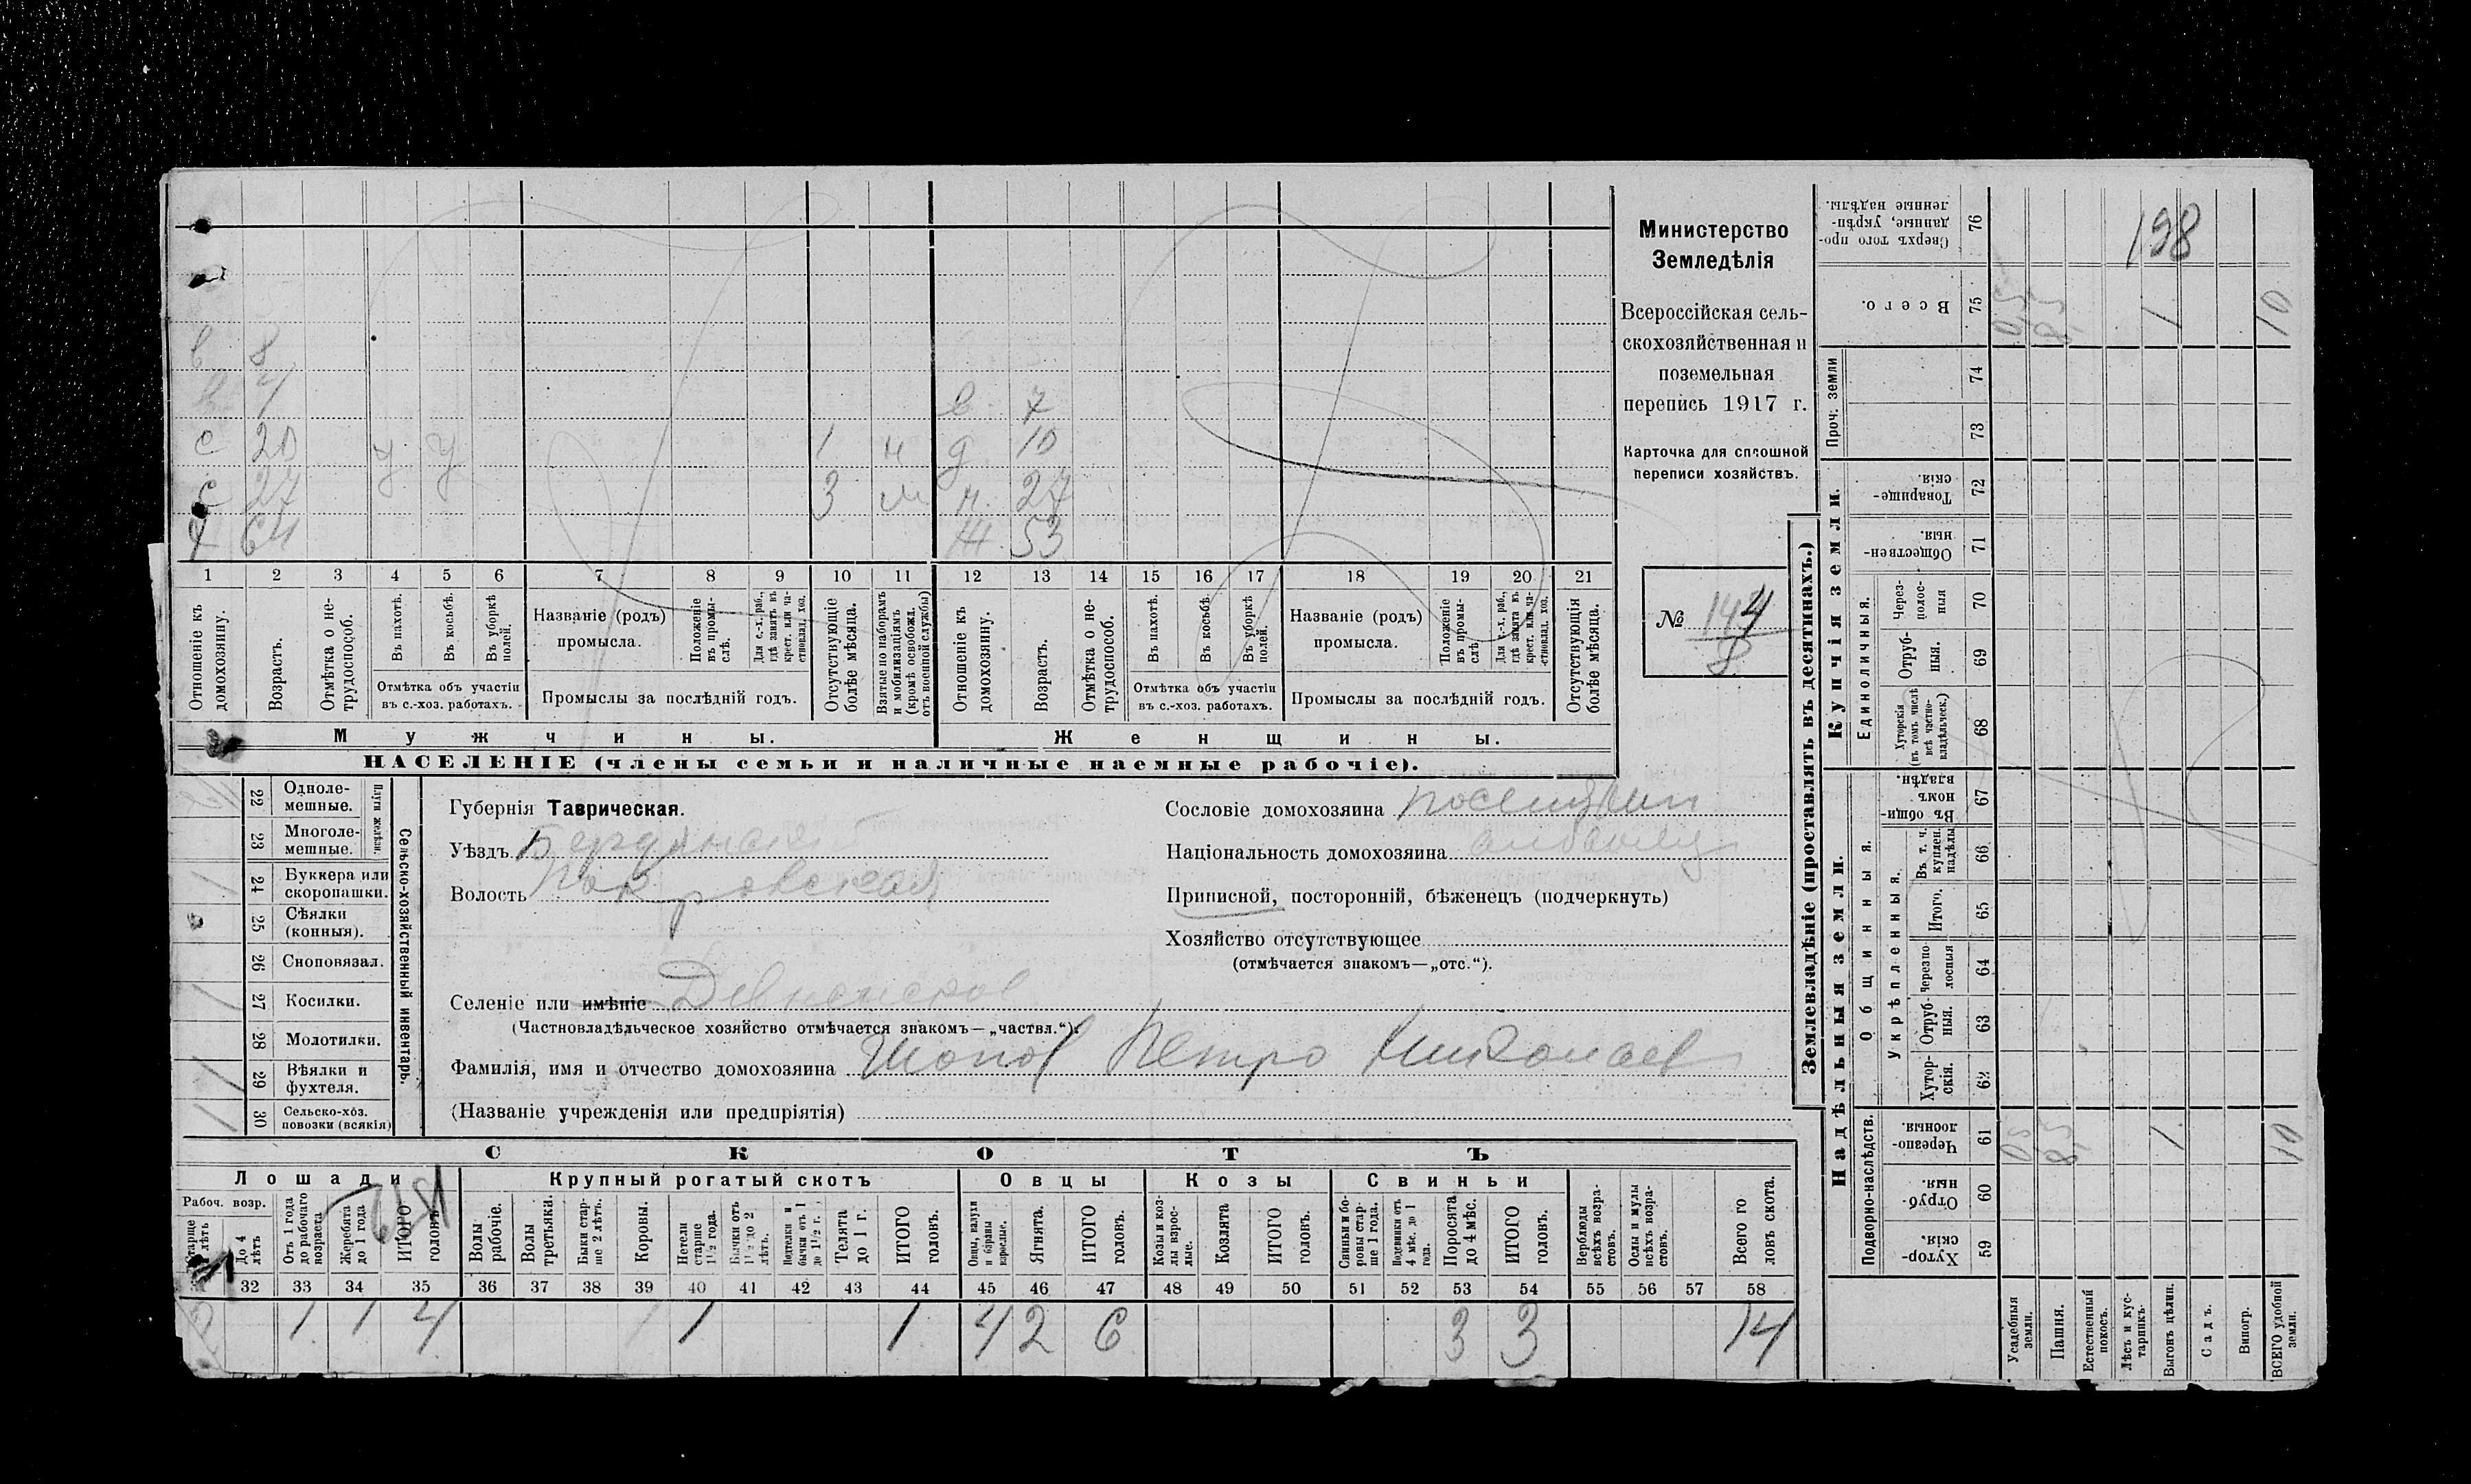 в 8
в 4
в 7
с 20 у у 1 н д 10
с 27 3 м н. 27
64 Ж. 53
1 2 3 4 5 6 7 8 9 10 11 12 13 14 15 16 17 18 19 20 21
Отношеніе къ домохозяину.
Возрастъ.
Отмѣтка о не-трудоспособ.
Въ пахотѣ.
Въ косьбѣ.
Въ уборкѣ полей.
Отмѣтка объ участіи
въ с.-хоз. работахъ.
Названіе (родъ)
промысла.
Положеніе въ промы-слѣ.
Для с.-х. раб., гдѣ занятъ въ крест. или ча-стновлад. хоз.
Промыслы за послѣдній годъ.
Отсутствующіе болѣе мѣсяца.
Взятые по наборамъ и мобилизаціямъ (кромѣ освобожд. отъ военной службы)
Отношеніе къ домохозяину.
Возрастъ.
Отмѣтка о не-трудоспособ.
Въ пахотѣ.
Въ косьбѣ.
Въ уборкѣ полей.
Отмѣтка объ участіи
въ с.-хоз. работахъ.
Названіе (родъ)
промысла.
Положеніе въ промы-слѣ.
Для с.-х. раб., гдѣ занята въ крест. или ча-стновлад. хоз.
Промыслы за послѣдній годъ.
Отсутствующія болѣе мѣсяца.
Мужчины.
Женщины.
НАСЕЛЕНІЕ (члены семьи и наличные наемные рабочіе).
Министерство
Земледѣлія
Всероссійская сель-
скохозяйственная и
поземельная
перепись 1917 г.
Карточка для сплошной
переписи хозяйствъ.
№ 144
8
Сельско-хозяйственный инвентарь.
Плуги желѣзн.
22 Однолемешные.
23 Многолемешные.
24 Буккера или скоропашки.
25 Сѣялки (конныя).
26 Сноповязал.
27 Косилки.
28 Молотилки.
29 Вѣялки и фухтеля.
30 Сельско-хоз. повозки (всякія)
Губернія Таврическая.
Уѣздъ Бердянскій
Волость Покровская
Селеніе или имѣніе Девненское
(Частновладѣльческое хозяйство отмѣчается знакомъ—„частвл.“).
Фамилія, имя и отчество домохозяина Шопов Петро Николаев
(Названіе учрежденія или предпріятія)
Сословіе домохозяина поселянин
Національность домохозяина албанец
Приписной, посторонній, бѣженецъ (подчеркнуть)
Хозяйство отсутствующее
(отмѣчается знакомъ—„отс.“).
СКОТЪ
Лошади
Крупный рогатый скотъ
Овцы
Козы
Свиньи
Рабоч. возр.
Старше 4 лѣтъ
До 4 лѣтъ
Отъ 1 года до рабочаго возраста
Жеребята до 1 года
ИТОГО головъ.
Волы рабочіе.
Волы третьяки.
Быки стар-ше 2 лѣтъ.
Коровы.
Нетели старше 1 1/2 года.
Бычки отъ 1 1/2 до 2 лѣтъ.
Подтелки и бычки отъ 1 до 1 1/2 г.
Телята до 1 г.
ИТОГО головъ.
Овцы, валухи и бараны взрослые.
Ягнята.
ИТОГО головъ.
Козы и коз-лы взрос-лые.
Козлята
ИТОГО головъ.
Свиньи и бо-ровы стар-ше 1 года.
Подсвинки отъ 4 мѣс. до 1 года.
Поросята до 4 мѣс.
ИТОГО головъ.
Верблюды всѣхъ возра-стовъ.
Ослы и мулы всѣхъ возра-стовъ.
Всего го ловъ скота.
32 33 34 35 36 37 38 39 40 41 42 43 44 45 46 47 48 49 50 51 52 53 54 55 56 57 58
1 1 4 1 1 1 4 2 6 3 3 14
Землевладѣніе (проставлять въ десятинахъ.)
Надѣльныя земли.
Купчія земли.
Проч. земли
Подворно-наслѣдств.
Общинныя.
Укрѣпленныя.
Единоличныя.
Хутор-скія. 59
Отруб-ныя. 60
Черезпо-лосныя. 61
Хутор-скія. 62
Отруб-ныя. 63
Черезпо-лосныя 64
Итого. 65
Въ т. ч. куплен. надѣлы 66
Въ общин-номъ владѣн. 67
Хуторскія (въ томъ числѣ всѣ частно-владѣльческ.) 68
Отруб-ныя. 69
Через-полос-ныя 70
Обществен-ныя. 71
Товарище-скія. 72
73
74
Всего. 75
Сверхъ того про-данные, укрѣп-ленные надѣлы. 76
Усадебныя земли.
Пашня.
Естественный покосъ.
Лѣсъ и кус-тарникъ.
Выгонъ цѣлин.
Садъ.
Виногр.
ВСЕГО удобной земли.
198
1 10
1 10